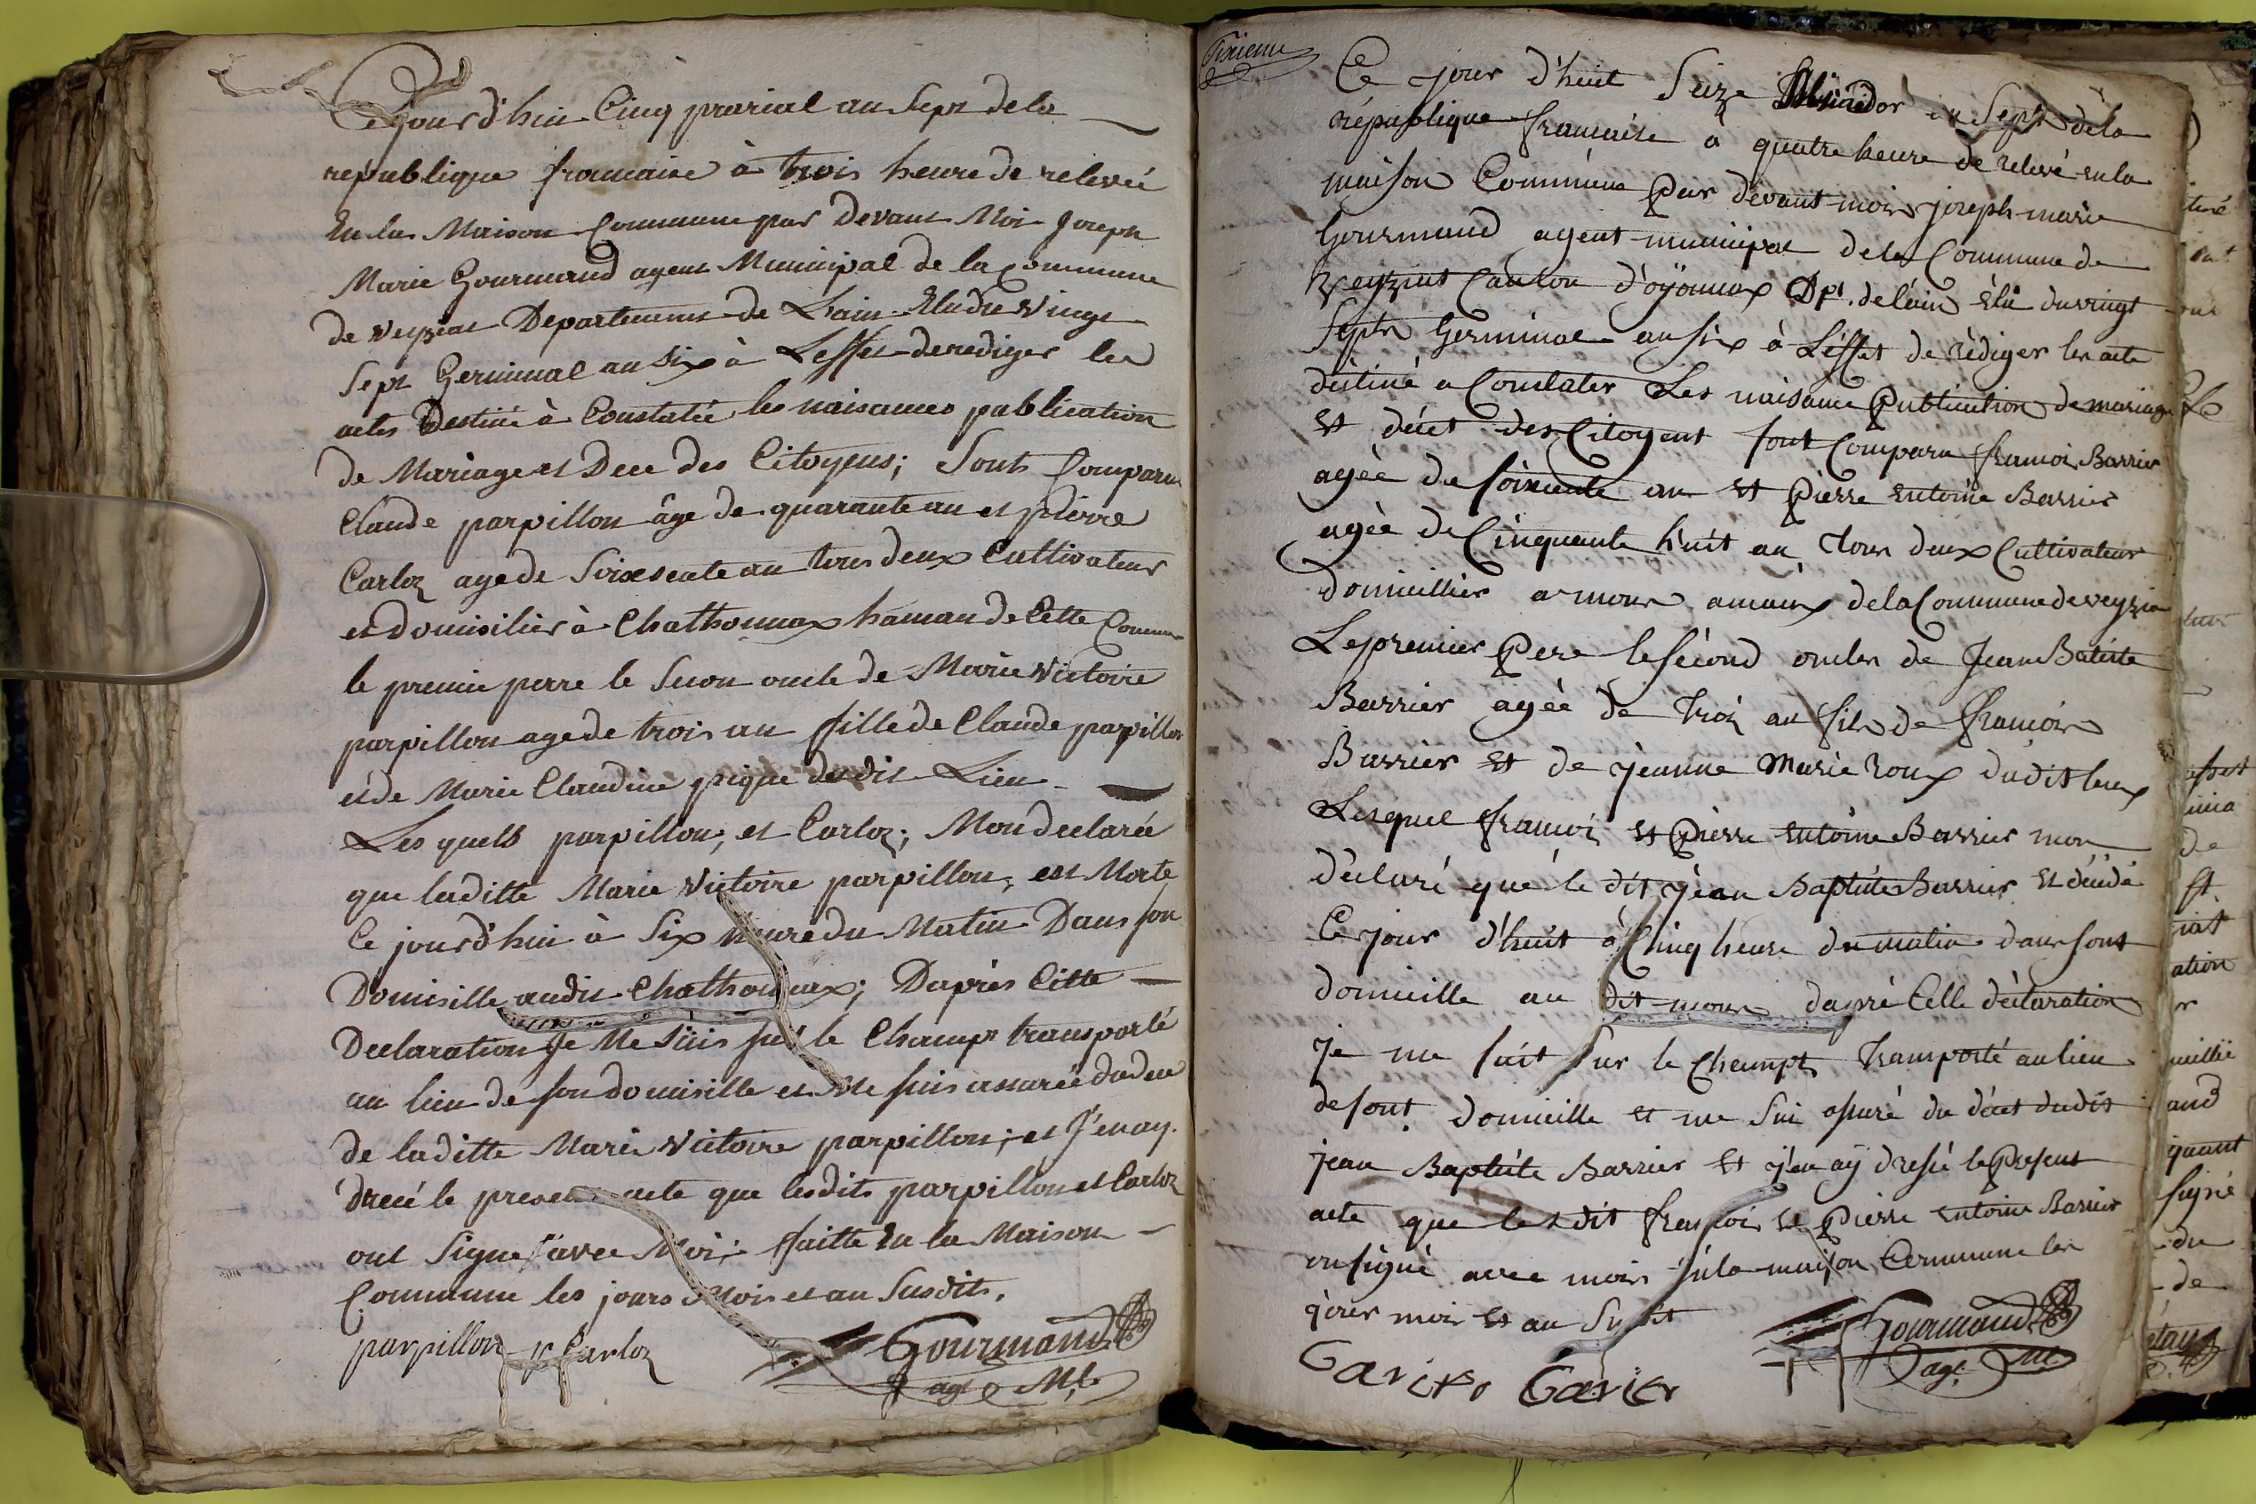 Cejourd'hui Cinq prairial an Sept de la
republique francaise à trois heure de relevée
En la Maison Commune par devant Moi Joseph
Marie Gourmand agent Municipal de la Commune
de veyziat Departement de Lain Elu du vingt
Sept Germinal an Six à Leffet de rediger les
actes Destiné à Constatée les naisances publication
de Mariage et Dece des Citoyens; Sont Comparu
Claude parpillon âge de quarante an et pierre
Carloz age de Soixseate an tous deux Cultivateur
et Domisilier à Chathonnax haman de Cette Commune
le premie perre le Secon oncle de Marie Victoire
parpillon age de trois an fille de Claude parpillon
et de Marie Claudine pique dudit Lieu
Les quels parpillon; et Carloz; Mon declarée
que laditte Marie Victoire parpillon; est Morte
Ce jourd'hui à Six heure du Matin Dans son
Domisille audit Chathonnax; Daprès Citte
Declaration Je Me Suis sur le Champt transporté
au lieu de son domisille et Me suis assurée du dece
de laditte Marie Victoire parpillon; et J'en ay
drecé le present acte que lesdits parpillon et Carloz
ont Signe avec Moi; faitte En la Maison
Commune les jours Mois et an Susdits.
parpillon p Carloz Gourmand
agt Ml
Sixieme
Ce jour d'huit Seize Messidor en Sept de la
république francaise à quatre heure de relevé en la
maison Commune Par devant moi joseph marie
Gourmand agent municipal de la Commune de
Veyziat Canton d'oyonnax Dpt. de l'ain élu du vingt
Septe Germinal an six à L'effet de rèdiger les acte
destiné a Constater Les naisance Publication de mariage
Et décet des Citoyent sont Comparu francoi Barrier
agée de soixente an Et Pierre entoine Barrier
agée de Cinquante huit an tous deux Cultivateur
domicillier a mons amaux de la Commune de veyzia
Le premier Pere le sécond oncles de Jean Batiste
Barrier agée de troi an fils de francois
Barrier Et de jeanne marie roux dudit lieux
Lesquel francoi Et Pierre entoine Barrier mon
déclaré que le dit jean Baptiste Barrier Et décédé
Ce jour d'huit à Cinq heure du matin dans sont
domicille au dit mons dapré Celle déclaration
je me suit sur le Champt transporté au lieu
de sont domicille et me sui assuré du décet dudit
jean Baptiste Barrier Et j'en aÿ dressé le Present
acte que les dit francoi et Pierre entoine Barrier
on signé avec moi en la maison Commune les
jour moi Et an Sudit
Garier Garier Gourmand
agt. Ml